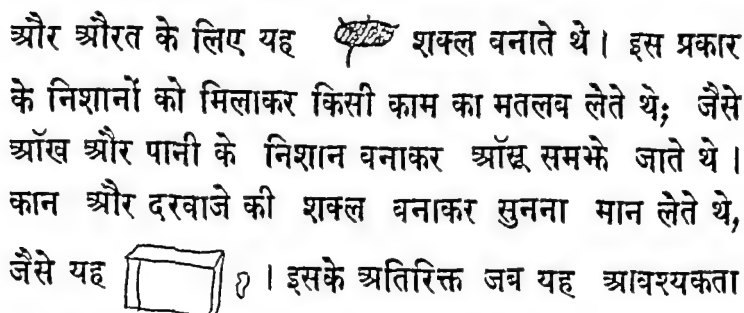 और औरत के लिए यह शक्ल बनाते थे । इस प्रकार
के निशानों को मिलाकर किसी काम का मतलब लेते थे; जैसे
आँख और पानी के निशान बनाकर आँसू समझे जाते थे ।
कान और दरवाजे की शक्ल बनाकर सुनना मान लेते थे,
जैसे यह । इसके अतिरिक्त जब यह आवश्यकता